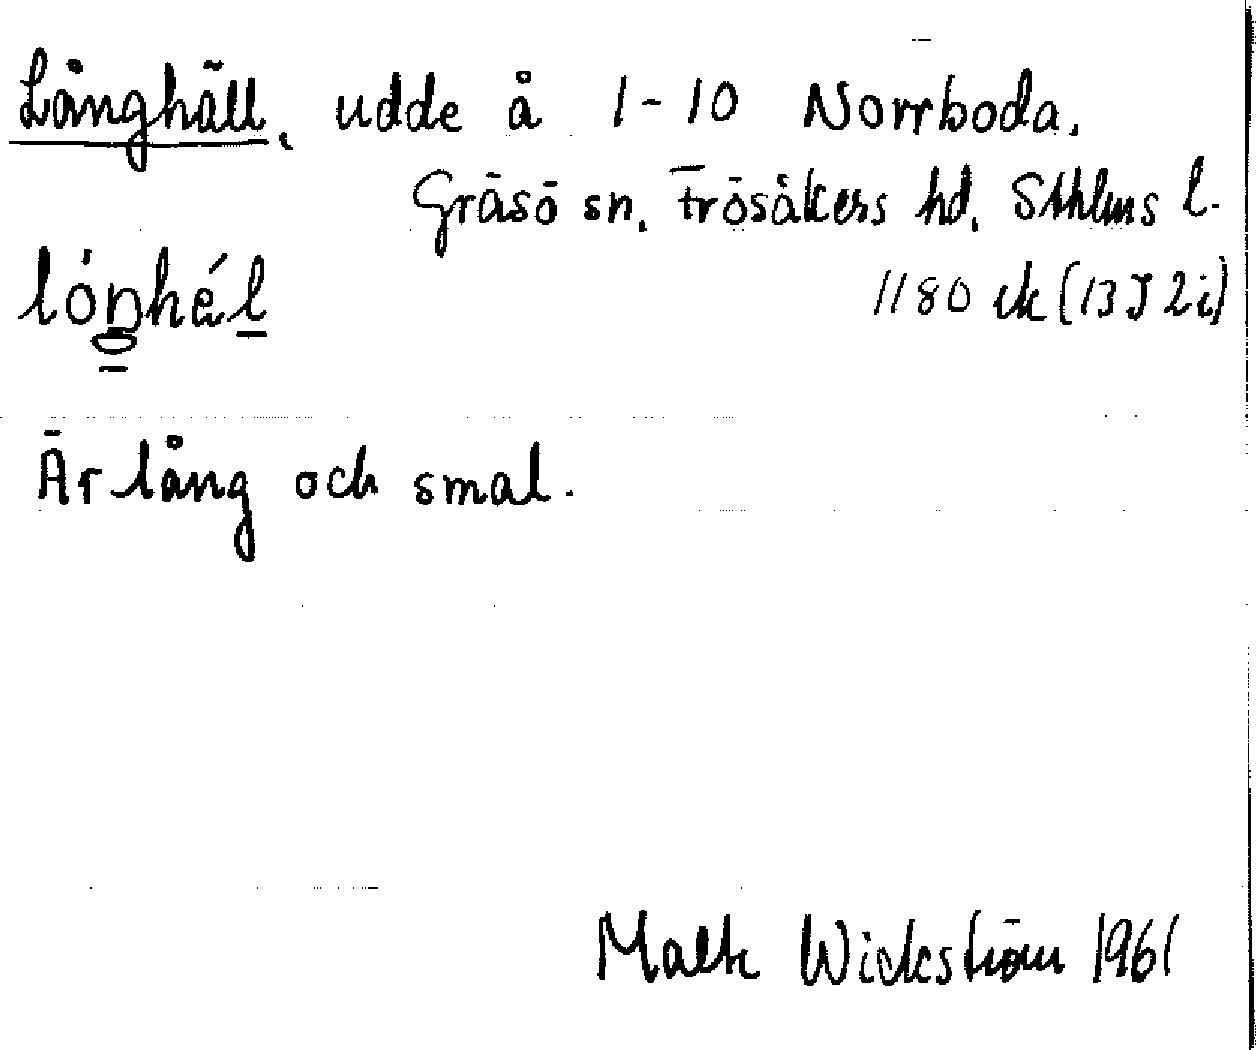 Långhäll, udde å 1-10 Norrboda,
Gräsö sn, Frösåkers hd, Sthlms l.
lóŋhél
1180 ek (13 I 2i)
Är lång och smal.
Malte Wickström 1961